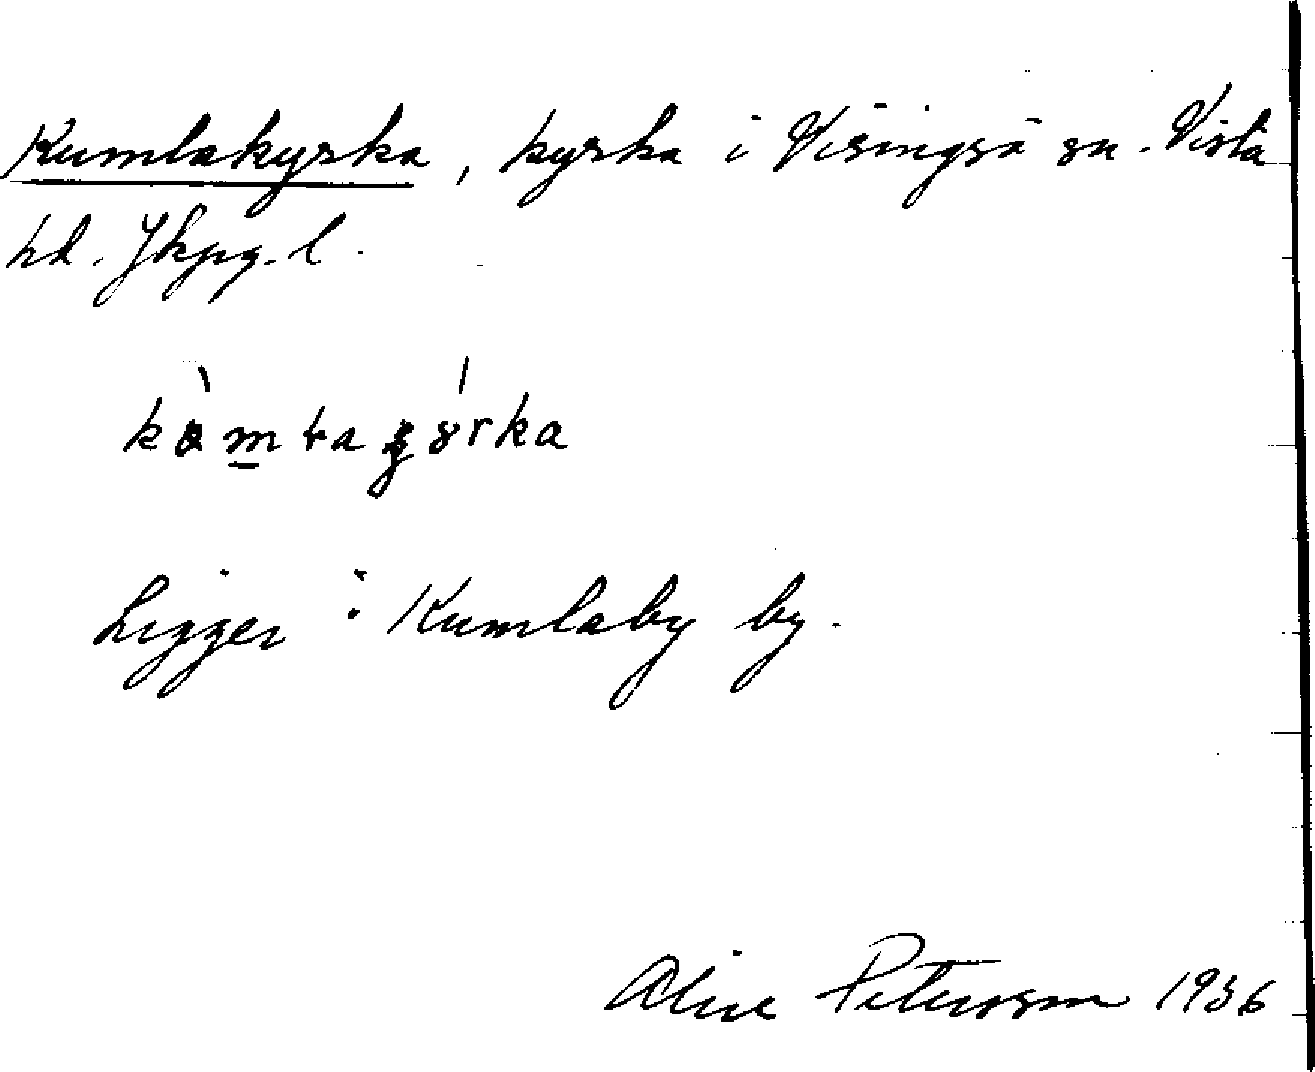 Kumlakyrka, kyrka i Visingsö sn. Vista
hd. Jkpg. l.
Ligger i Kumlaby by.
Alice Petersson 1936